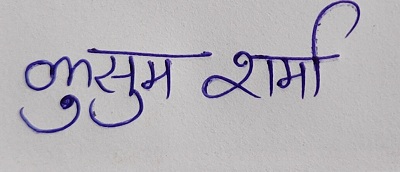 कुसुम शर्मा